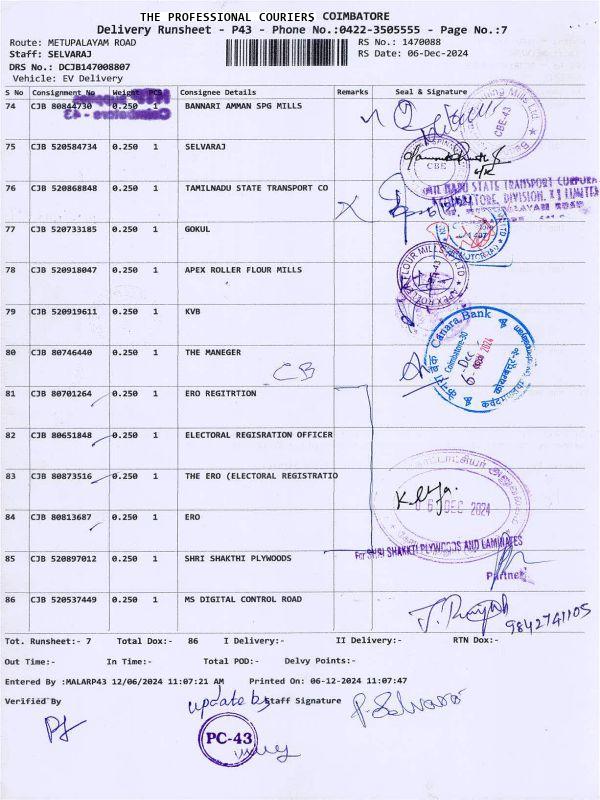 THE PROFESSIONAL COURIERS COIMBATORE
Delivery Runsheet - P43 - Phone No.:0422-3505555 - Page No.:7
Route: METUPALAYAM ROAD RS No.: 1470088
Staff: SELVARAJ RS Date: 06-Dec-2024
DRS No.: DCJB147008807
Vehicle: EV Delivery
S No Consignment No Weight PCS Consignee Details Remarks Seal & Signature
74 CJB 80844730 0.250 1 BANNARI AMMAN SPG MILLS
CBE-43
75 CJB 520584734 0.250 1 SELVARAJ
CBE
76 CJB 520868848 0.250 1 TAMILNADU STATE TRANSPORT CO
NADU STATE TRANSPORT CORPORA
DIVISION
77 CJB 520733185 0.250 1 GOKUL
78 CJB 520918047 0.250 1 APEX ROLLER FLOUR MILLS
79 CJB 520919611 0.250 1 KVB
80 CJB 80746440 0.250 1 THE MANEGER
CB
Canara Bank
Coimbatore-30
6 Dec 2024
81 CJB 80701264 0.250 1 ERO REGITRTION
82 CJB 80651848 0.250 1 ELECTORAL REGISRATION OFFICER
83 CJB 80873516 0.250 1 THE ERO (ELECTORAL REGISTRATIO
06 DEC 2024
84 CJB 80813687 0.250 1 ERO
For SHRI SHAKKTI PLYWOODS AND LAMINATES
85 CJB 520897012 0.250 1 SHRI SHAKTHI PLYWOODS
Partner
86 CJB 520537449 0.250 1 MS DIGITAL CONTROL ROAD
9842741105
Tot. Runsheet:- 7 Total Dox:- 86 I Delivery:- II Delivery:- RTN Dox:-
Out Time:- In Time:- Total POD:- Delvy Points:-
Entered By :MALARP43 12/06/2024 11:07:21 AM Printed On: 06-12-2024 11:07:47
Verified By update by Staff Signature
P. Selvaraj
PC-43